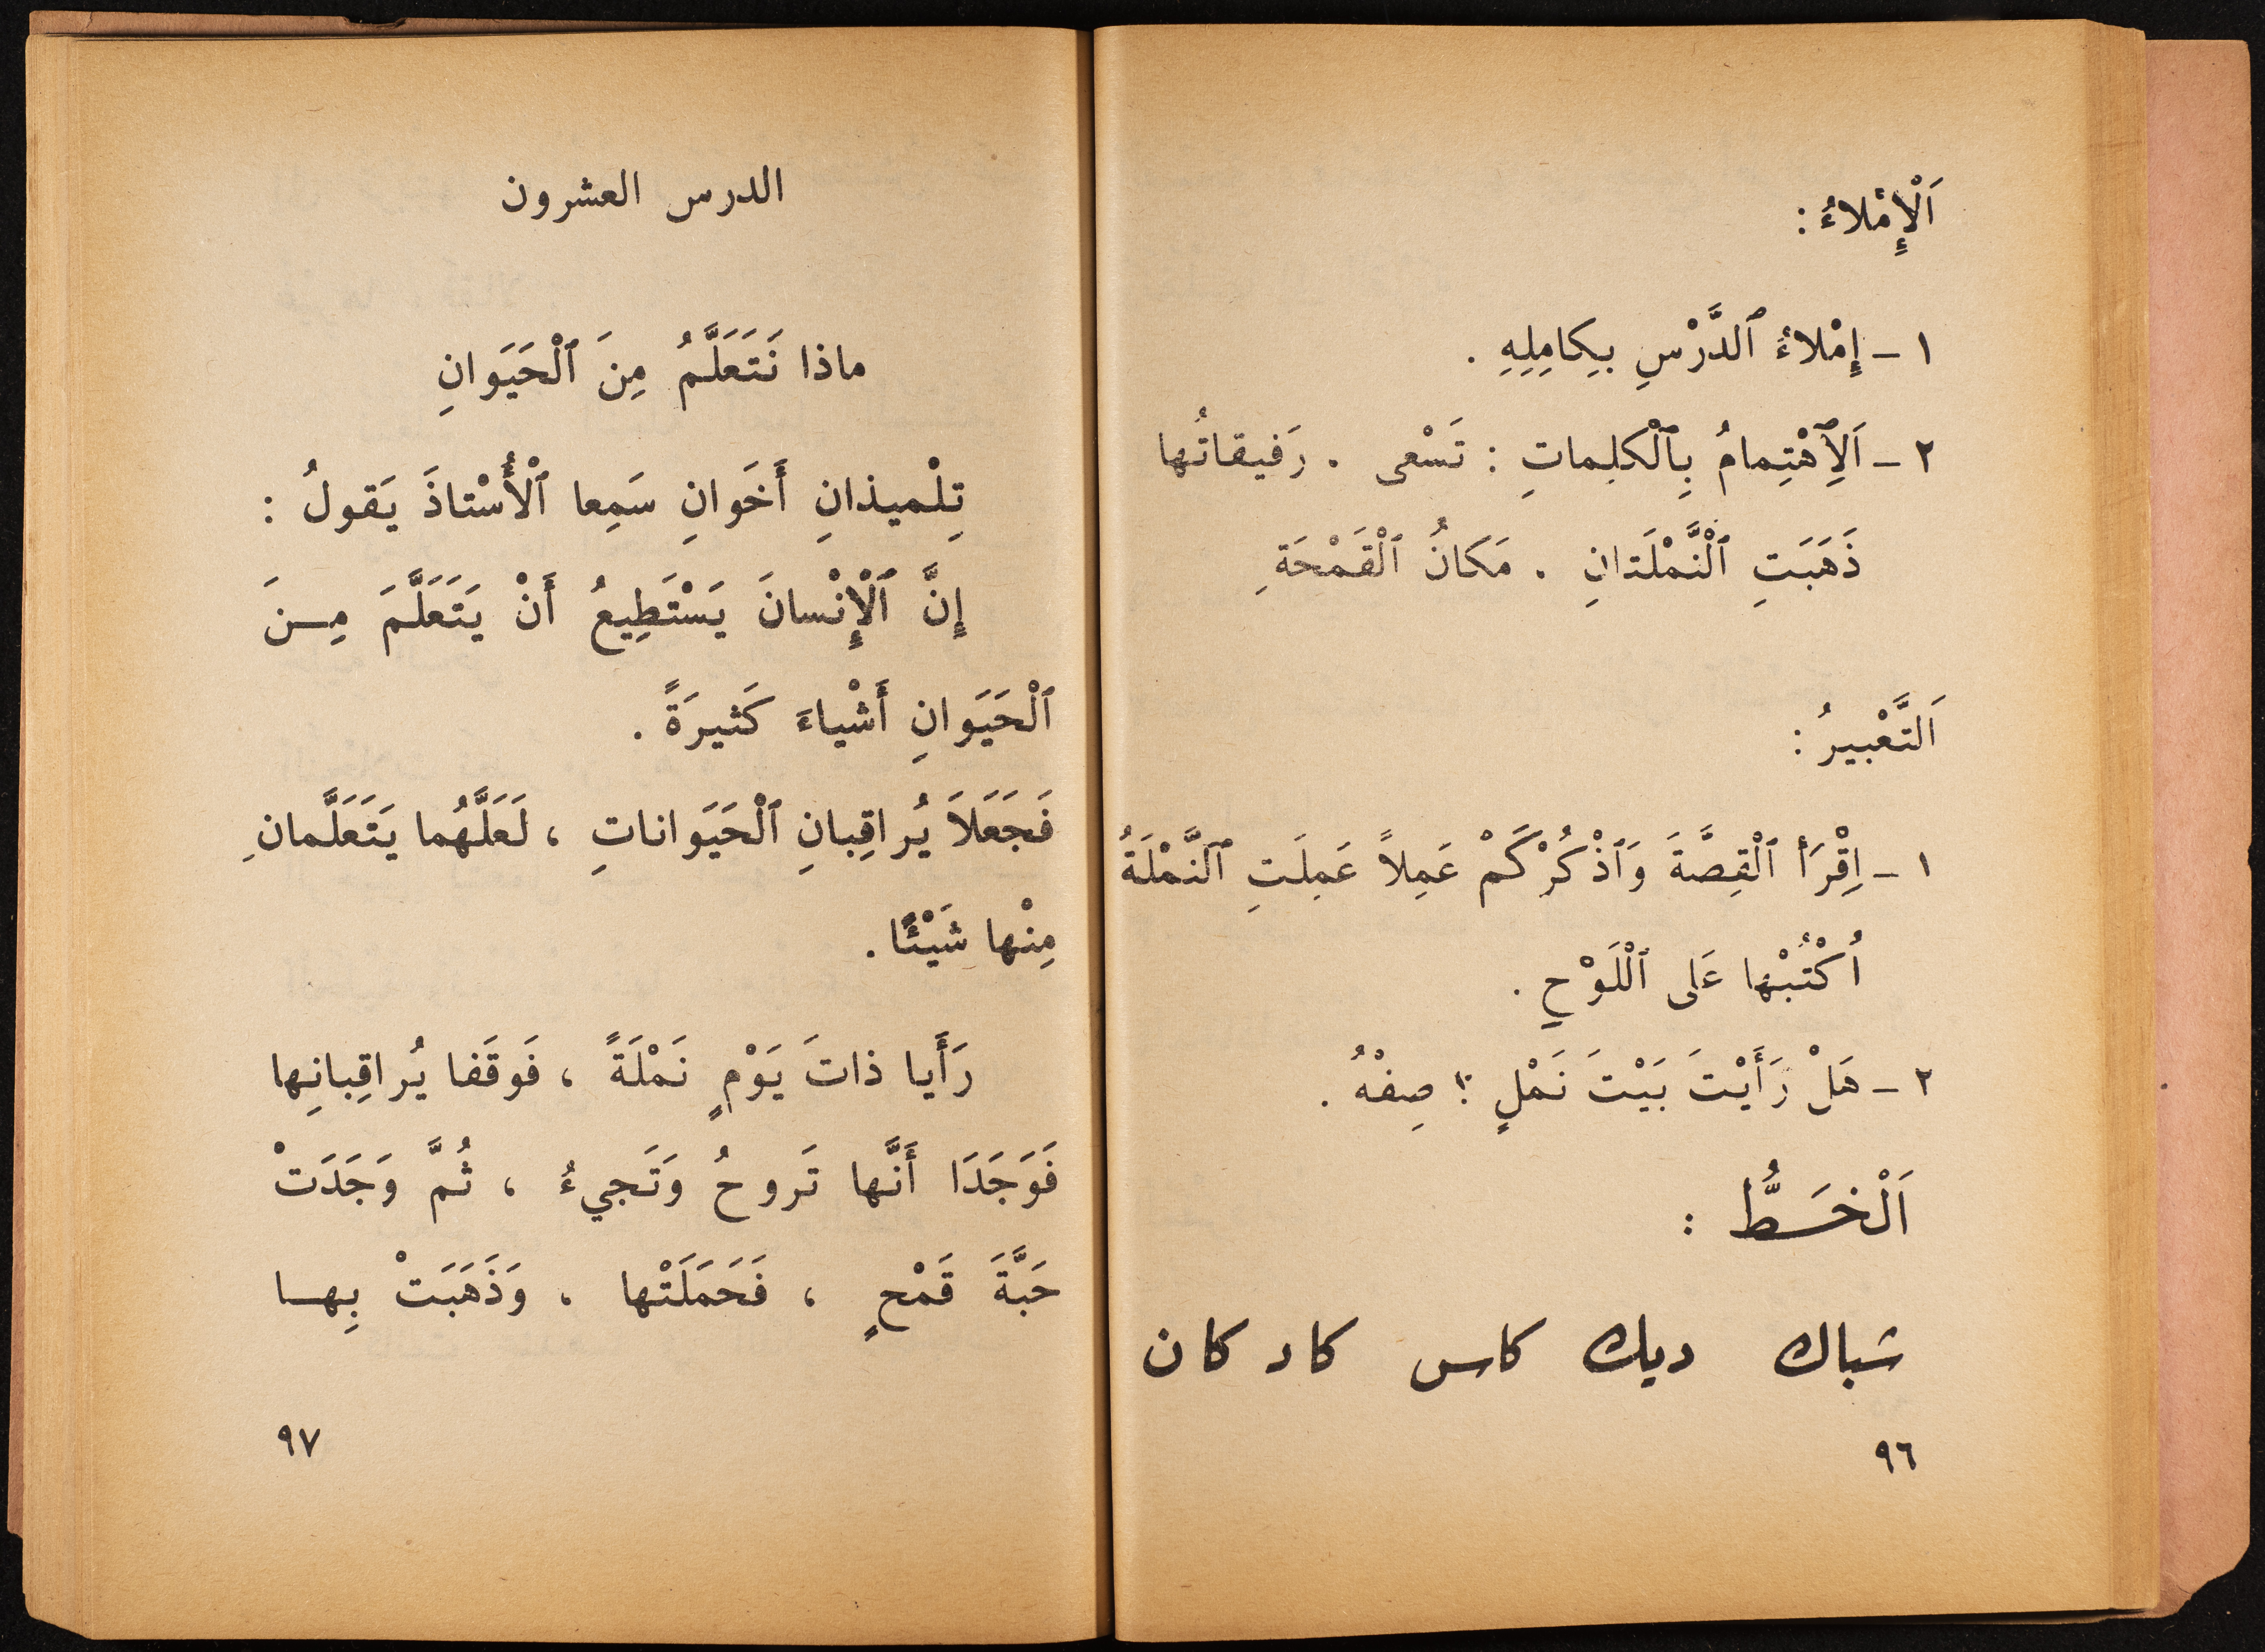 اَلْإِمْلاءُ :
١ - إِمْلاءُ ٱلدَّرْسِ بِكامِلِهِ .
٢ - اَلِٱهْتِمامُ بِٱلْكلِماتِ : تَسْعى . رَفيقاتُها
ذَهَبَتِ ٱلْنَّمْلَتانِ . مَكَانُ ٱلْقَمْحَةِ
اَلتَّعْبيرُ :
١ - اِقْرَأ ٱلْقِصَّةَ وَٱذْكُرْ كَمْ عَمِلاً عَمِلَتِ ٱلنَّمْلَةُ
اُكْتُبْها عَلى ٱلْلَوْحِ .
٢ - هَلْ رَأَيْتَ بَيْتَ نَمْلٍ ؟ صِفْهُ .
اَلْخَـطُّ :
شباك ديك كاس كاد كان
٩٦
الدرس العشرون
ماذا نَتَعَلَّمُ مِنَ ٱلْحَيَوانِ
تِلْميذانِ أَخَوانِ سَمِعا ٱلْأُسْتاذَ يَقولُ :
إِنَّ ٱلْإِنْسانَ يَسْتَطِيعُ أَنْ يَتَعَلَّمَ مِـنَ
ٱلْحَيَوانِ أَشْياءَ كَثيرَةً .
فَجَعَلاَ يُراقِبانِ ٱلْحَيَواناتِ ، لَعَلَّهُما يَتَعَلَّمانِ
مِنْها شَيْئًا .
رَأَيا ذاتَ يَوْمٍ نَمْلَةً ، فَوقَفا يُراقِبانِها
فَوَجَدَا أَنَّها تَروحُ وَتَجيءُ ، ثُمَّ وَجَدَتْ
حَبَّةَ قَمْحٍ ، فَحَمَلَتْها ، وَذَهَبَتْ بِهـا
٩٧